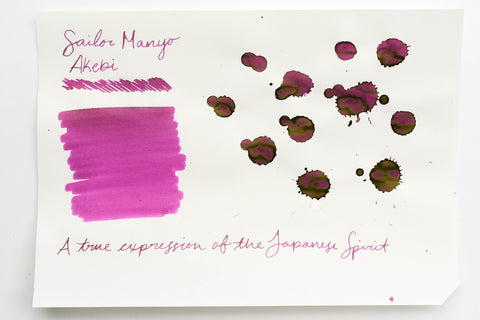 Sailor Manyo
Akebi
A true expression of the Japanese Spirit